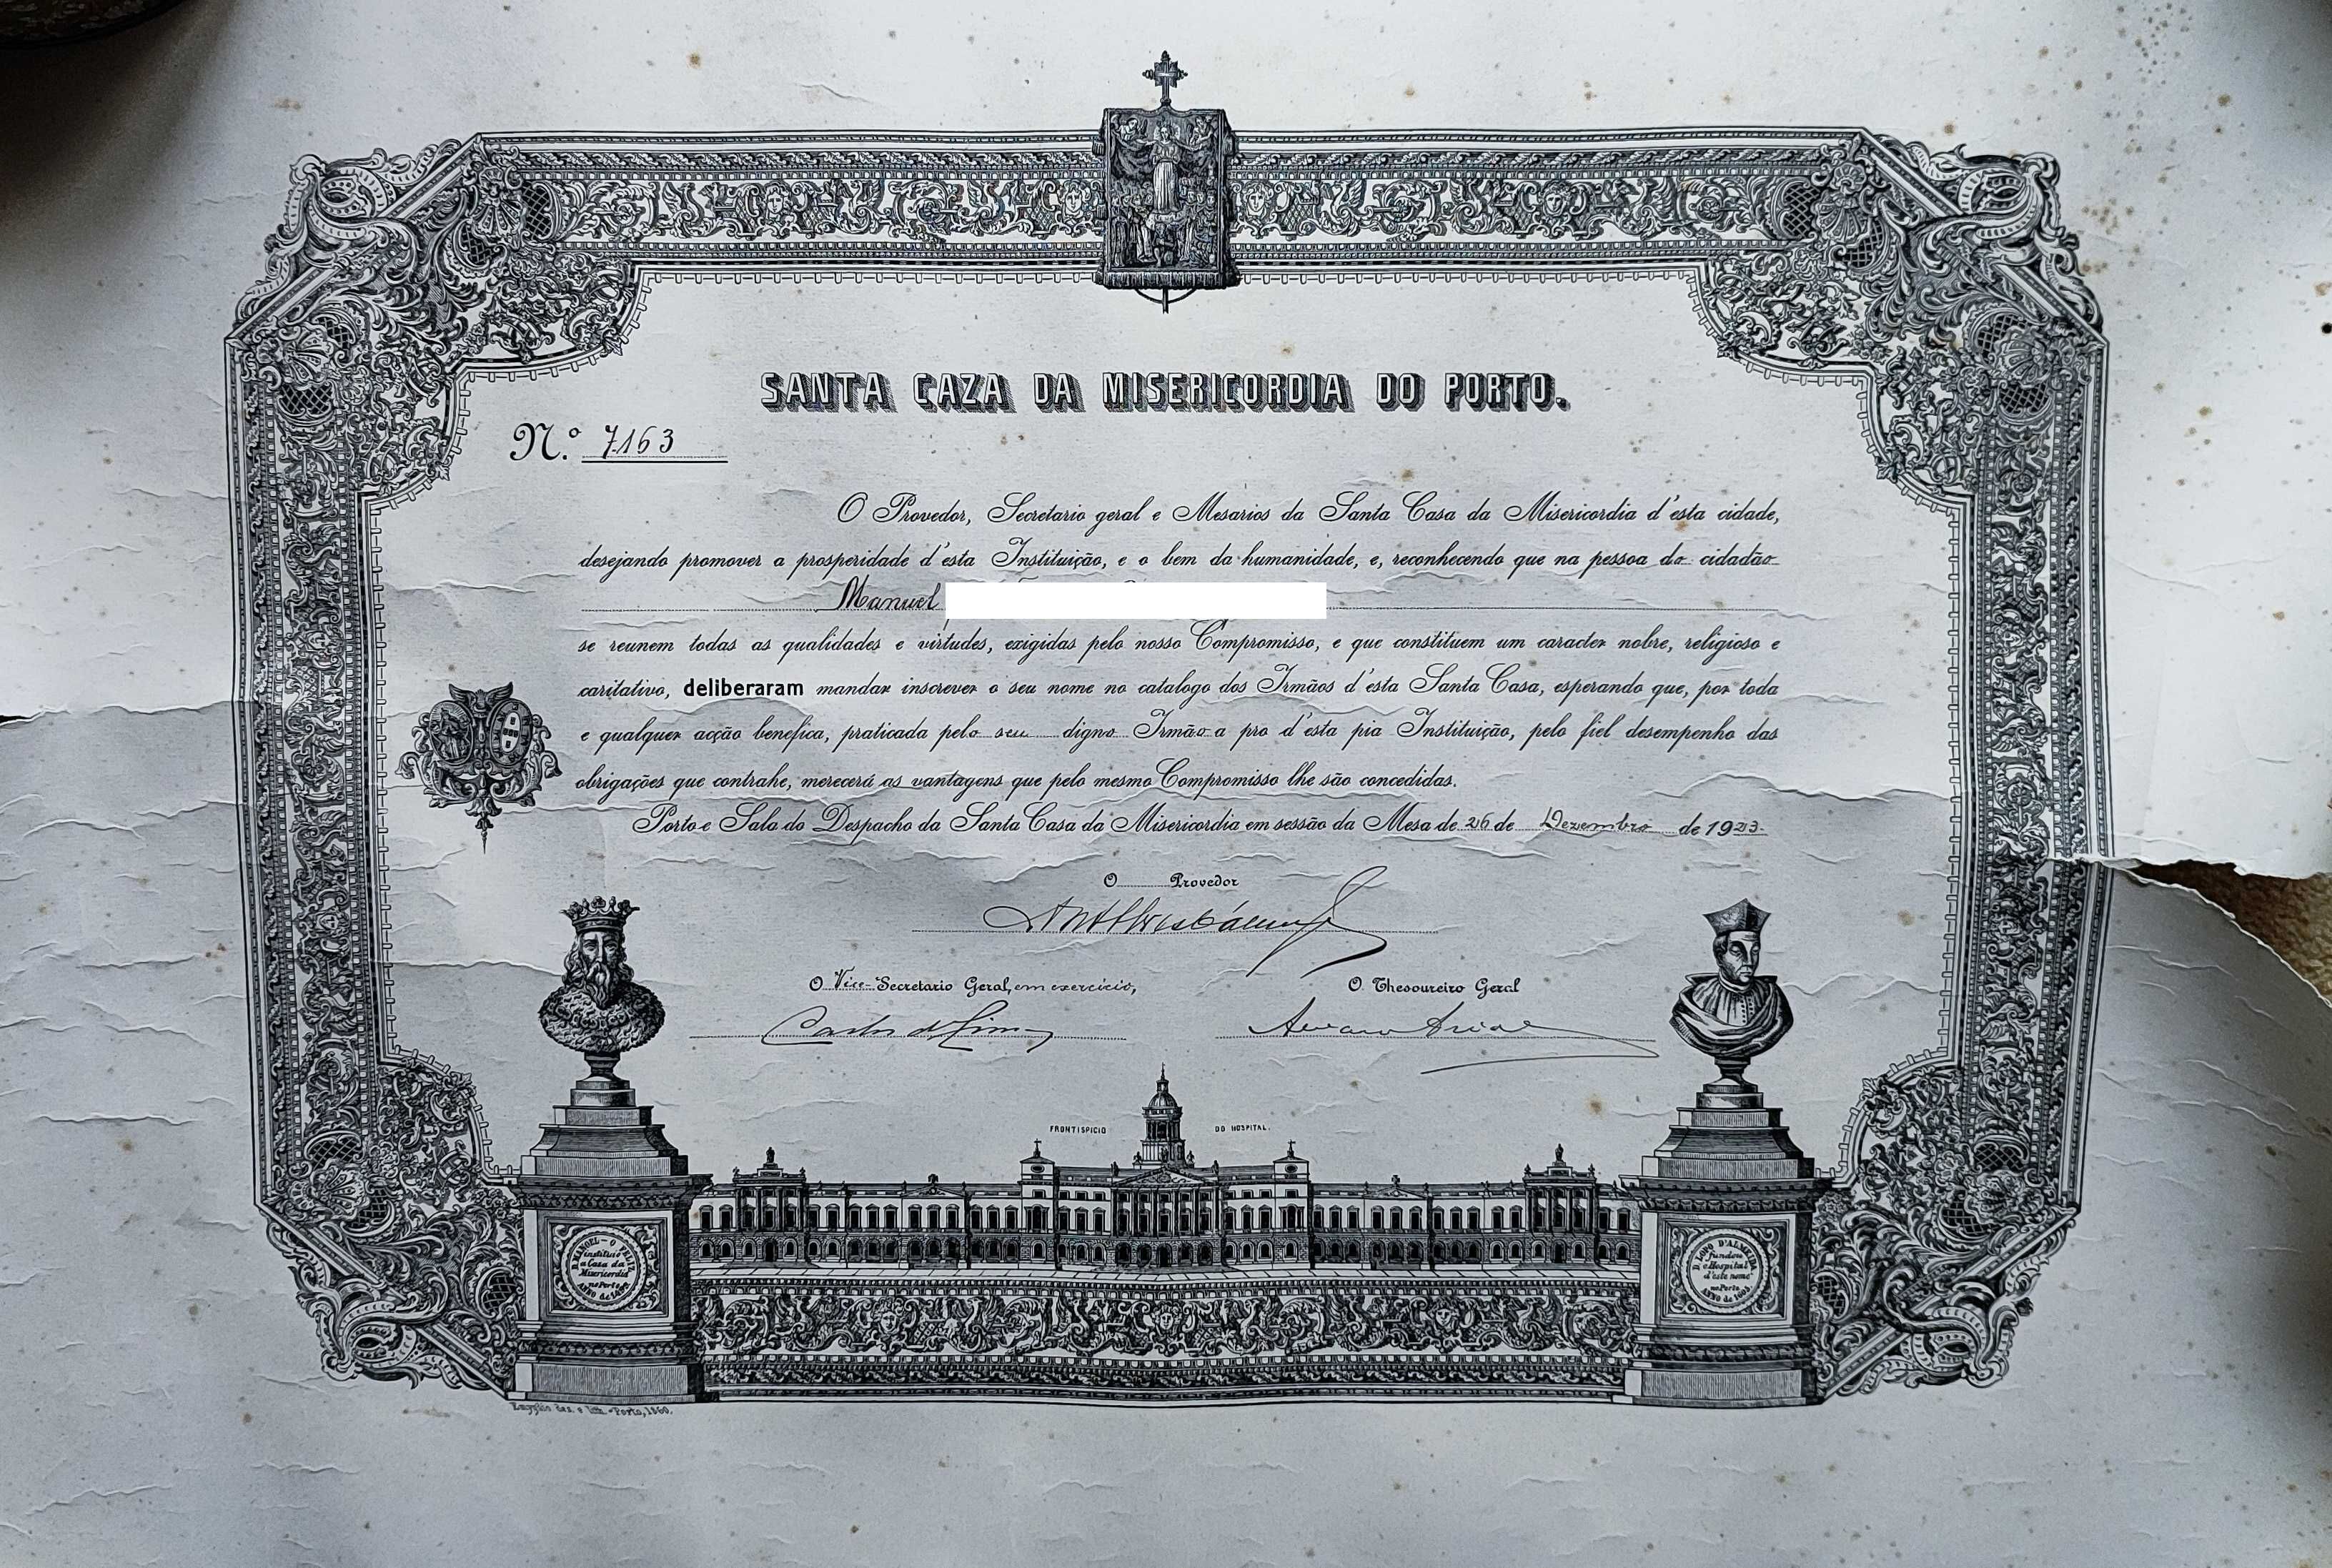 SANTA CAZA DA MISERICORDIA DO PORTO.
N.º 7163
O Provedor, Secretario geral e Mesarios da Santa Casa da Misericordia d'esta cidade,
desejando promover a prosperidade d'esta Instituição, e o bem da humanidade, e, reconhecendo que na pessoa do cidadão
Manuel
se reunem todas as qualidades e virtudes, exigidas pelo nosso Compromisso, e que constituem um caracter nobre, religioso e
caritativo, deliberaram mandar inscrever o seu nome no catalogo dos Irmãos d'esta Santa Casa, esperando que, por toda
e qualquer acção benefica, praticada pelo seu digno Irmão a pro d'esta pia Instituição, pelo fiel desempenho das
obrigações que contrahe, merecerá as vantagens que pelo mesmo Compromisso lhe são concedidas.
Porto e Sala do Despacho da Santa Casa da Misericordia em sessão da Mesa de 26 de Dezembro de 1923.
O Provedor
O Vice-Secretario Geral, em exercicio,
O Thesoureiro Geral
Carlos de Lima
FRONTISPICIO DO HOSPITAL.
D. MANOEL - O FELIZ
instituiu
a Casa da
Misericordia
no Porto
ANNO de 1499
D. LOPO D'ALMEIDA
fundou
o Hospital
d'este nome
no Porto
ANNO de 1605
des. e lith. - Porto, 1860.